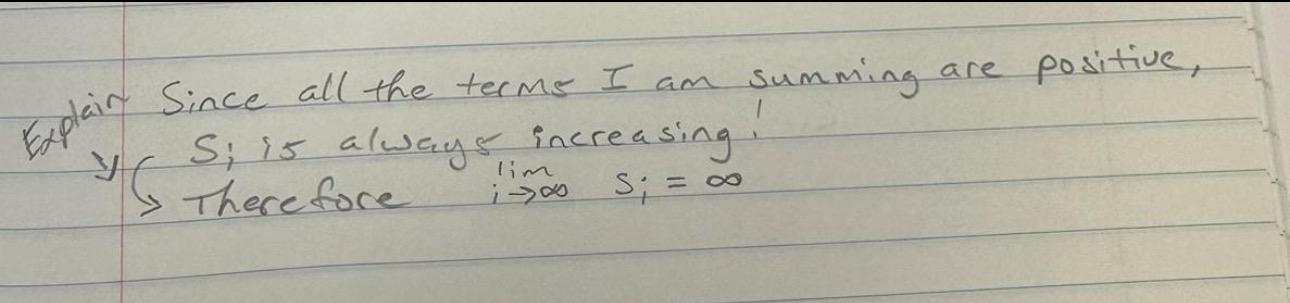 Explain Since all the terms I am summing are positive,
Si is always increasing!
Therefore lim i→∞ Si = ∞